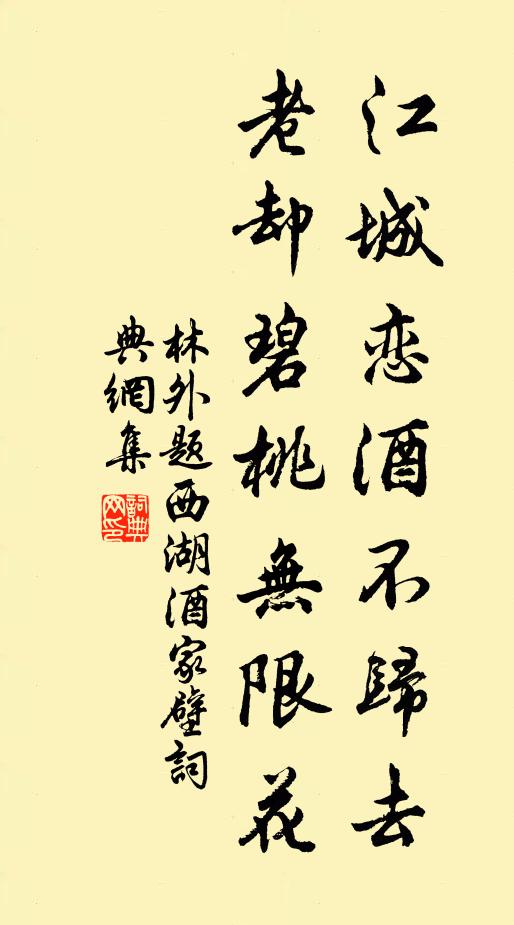 江城恋酒不歸去
老却碧桃無限花
林外题西湖酒家壁詞
典網集
詞典網印